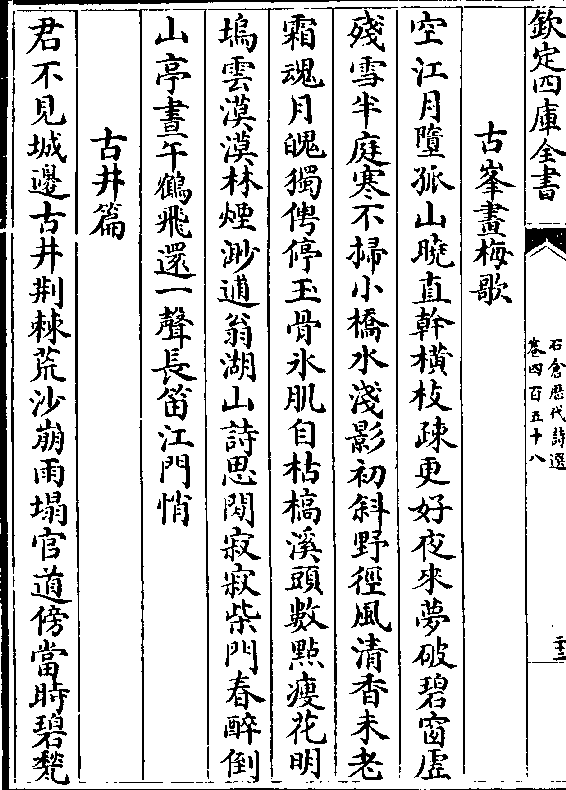 欽定四庫全書
石倉歷代詩選
卷四百五十八
二十二
古峯畫梅歌
空江月墮孤山曉直幹橫枝疎更好夜來夢破碧窗虛
殘雪半庭寒不掃小橋水淺影初斜野徑風清香未老
霜魂月魄獨俜停玉骨氷肌自枯槁溪頭數㸃瘦花明
塢雲漠漠林煙渺逋翁湖山詩思閒寂寂柴門春醉倒
山亭晝午鶴飛還一聲長笛江門悄
古井篇
君不見城邊古井荆棘荒沙崩雨塌官道傍當時碧甃